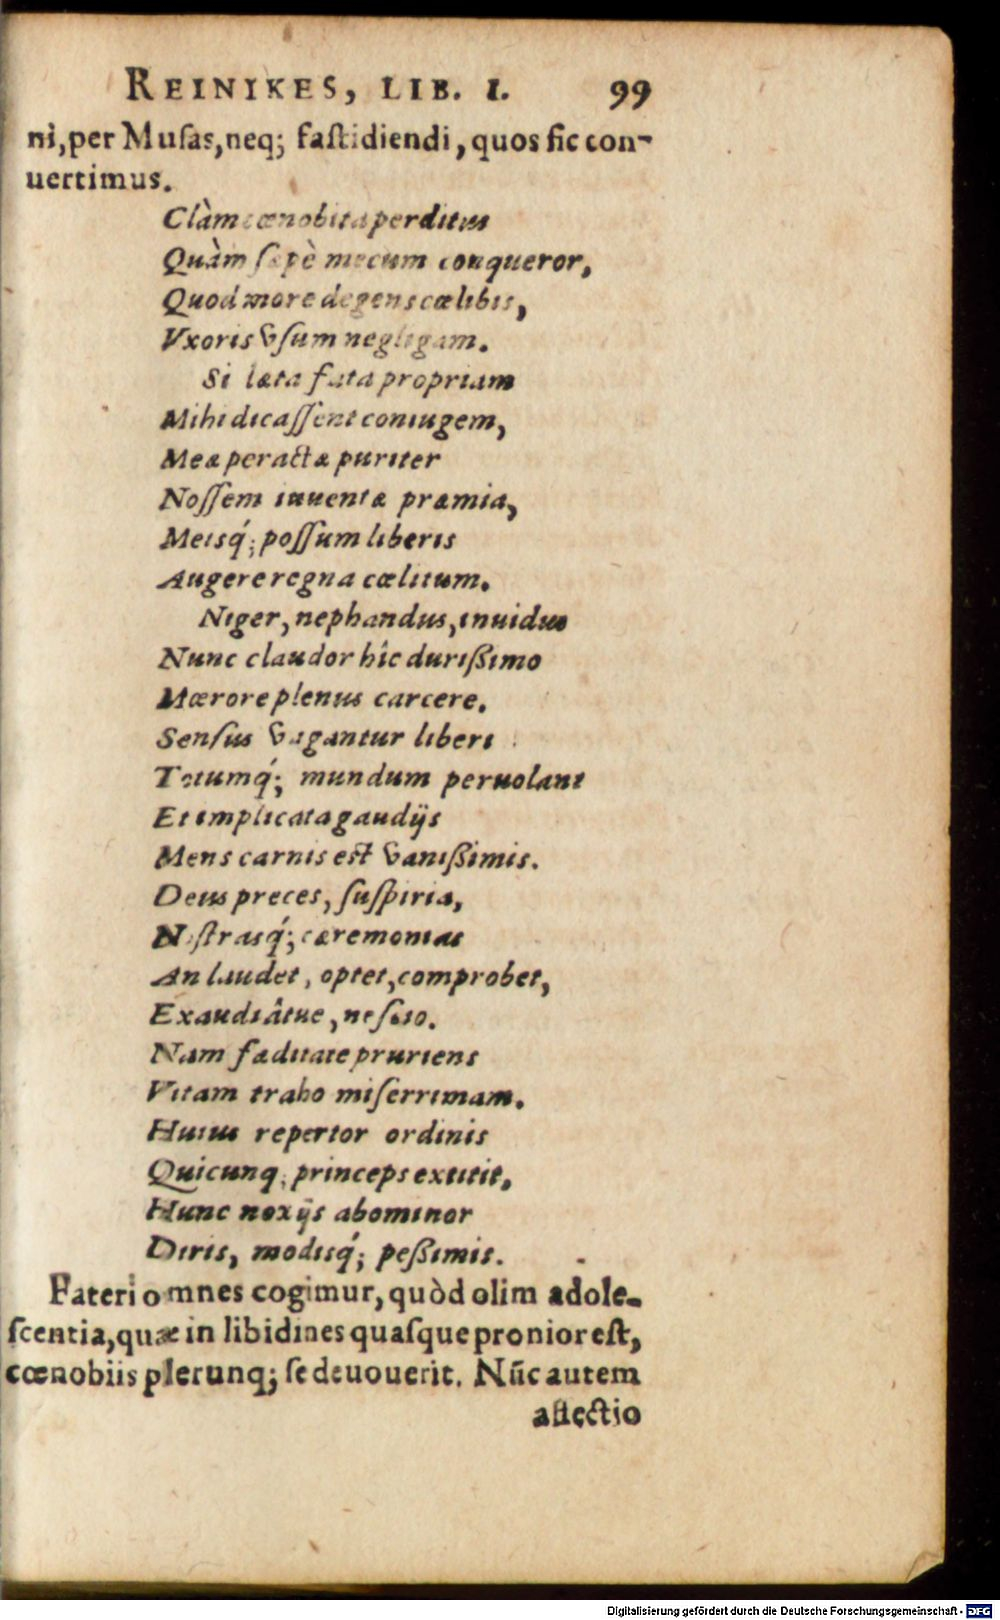 REINIKES, LIB. I. 99
ni, per Muſas, neq; faſtidiendi, quos ſic con-
uertimus.
Clàm cœnobita perditus
Quàm ſæpè mecum conqueror,
Quod more degens cælibis,
Vxoris vſum negligam.
Si læta fata propriam
Mihi dicaſſent coniugem,
Meæ peractæ puriter
Noſſem iuuentæ præmia,
Meisq́; poſſum liberis
Augere regna cœlitum.
Niger, nephandus, inuidus
Nunc claudor hîc durißimo
Mœrore plenus carcere.
Senſus vagantur liberi
Totumq́; mundum peruolant
Et implicata gaudijs
Mens carnis est vanißimis.
Deus preces, ſuſpiria,
Noſtrasq́; cæremonias
An laudet, optet, comprobet,
Exaudiâtue, neſcio.
Nam fæditate pruriens
Vitam traho miſerrimam.
Huius repertor ordinis
Quicunq; princeps extitit,
Hunc noxijs abominor
Diris, modisq́; peßimis.
Fateri omnes cogimur, quòd olim adole-
ſcentia, quæ in libidines quaſque pronior eſt,
cœnobiis plerunq; ſe deuouerit. Nūc autem
affectio
Digitalisierung gefördert durch die Deutsche Forschungsgemeinschaft - DFG